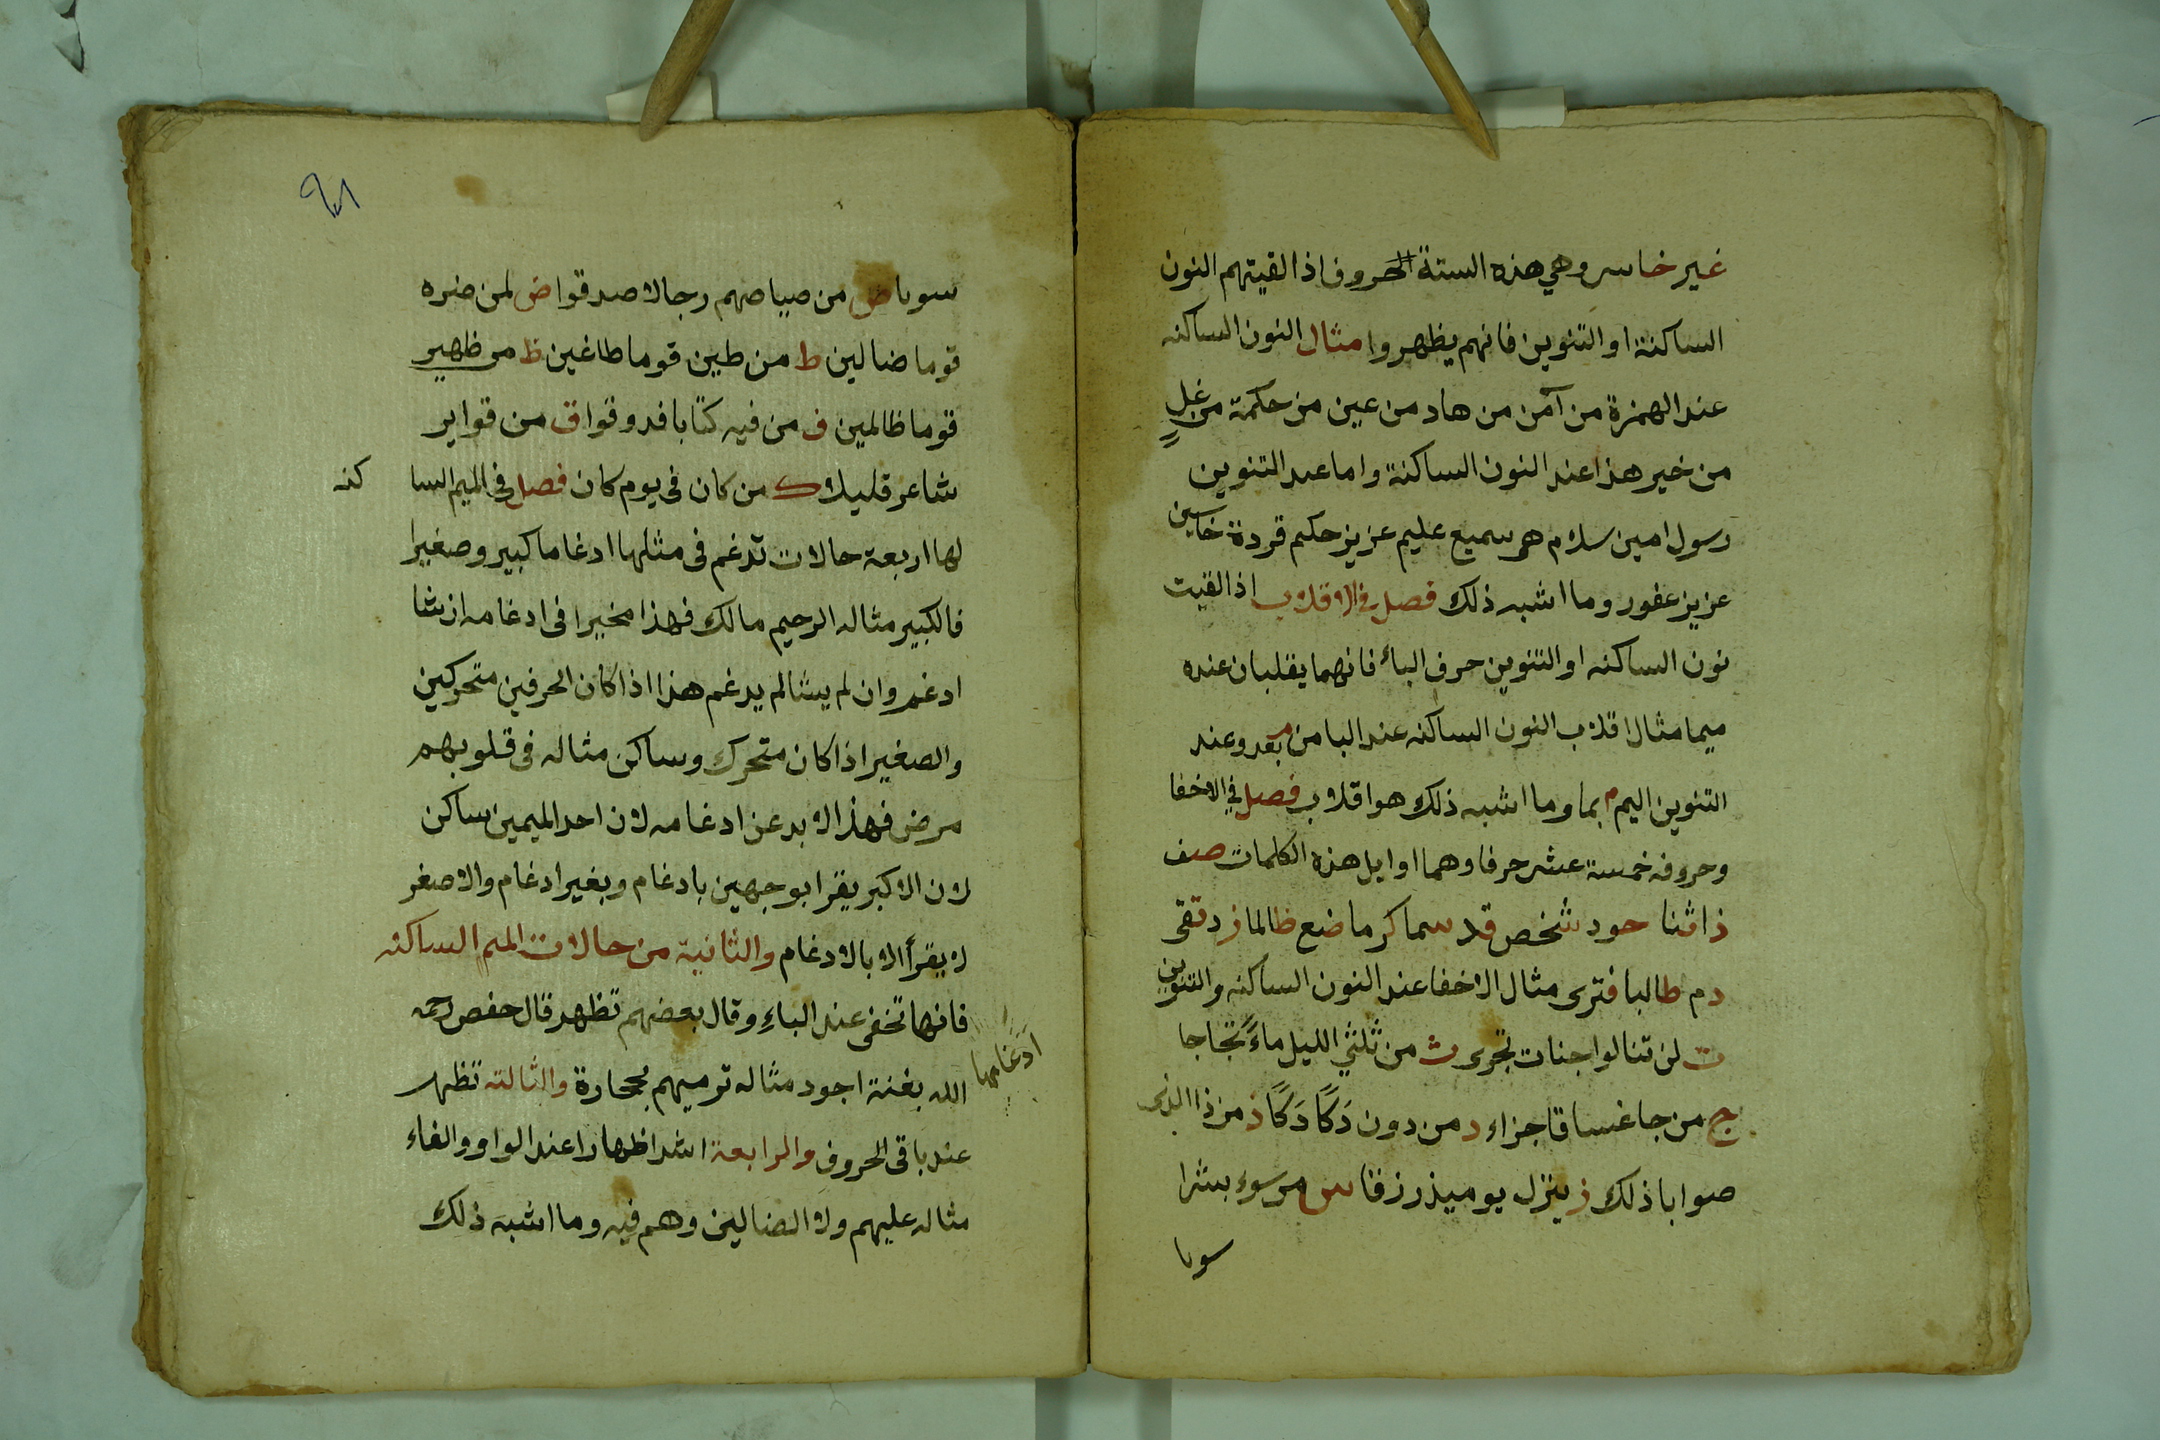 غير خاسر وهي هذه الستة الحروف اذا لقيتهم النون
الساكنة او التنوين فانهم يظهروا مثال النون الساكنه
عند الهمزة من آمن من هاد من عين من حكمة من غلٍ
من خير هذا عند النون الساكنة واما عند التنوين
رسول امين سلام هى سميع عليم عزيز حكيم قردة خاسين
عزيز غفور وما اشبه ذلك فصل في الاقلاب اذا لقيت
نون الساكنه او التنوين حرف الباء فانهما يقلبان عنده
ميما مثال اقلاب النون الساكنه عند البا من م بعد وعند
التنوين اليم م بما وما اشبه ذلك هو اقلاب فصل في الاخفا
وحروفه خمسة عشر حرفا وهما اوايل هذه الكلمات صف
ذا ثنا جود شخص قد سما كرما ضع ظالما زد تقى
دم طالبا فترى مثال الاخفا عند النون الساكنه والتنوين
ت لن تنالوا جنات تجرى ث من ثلثي الليل ماءً ثجاجا
ج من جا غساقا جزاء د من دون دَكًا دَكًا ذ من ذا الذى
صوابا ذلك ز ينزل يوميذ زرقا س من سوء بشرا
سويا
٩٨
سويا ص من صياصهم رجالا صدقوا ض لمن ضره
قوما ضالين ط من طين قوما طاغين ظ من ظهير
قوما ظالمين ف من فيه كتابا فدوقوا ق من قوارير
شاعر قليلا ك من كان في يوم كان فصل في الميم السا كنه
لها اربعة حالات تدغم في مثلها ادغاما كبير وصغيرا
فالكبير مثاله الرحيم مالك فهذا مخيرا في ادغامه ان شا
ادغم وان لم يشا لم يدغم هذا اذا كان الحرفين متحركين
والصغير اذا كان متحرك وساكن مثاله في قلوبهم
مرض فهذا لا بد عن ادغامه لان احد الميمين ساكن
لان الاكبر يقرا بوجهين بادغام وبغير ادغام والاصغر
لا يقرأ الا بالادغام والثانية من حالات الميم الساكنه
فانها تخفى عند الباءِ وقال بعضهم تظهر قال حفص رحمه
الله بغنة اجود مثاله ترميهم بحجارة والثالثه تظهر
ادغامها
عند باقي الحروف والرابعة اشد اظهارا عند الواو والفاء
مثاله عليهم ولا الضالين وهم فيه وما اشبه ذلك